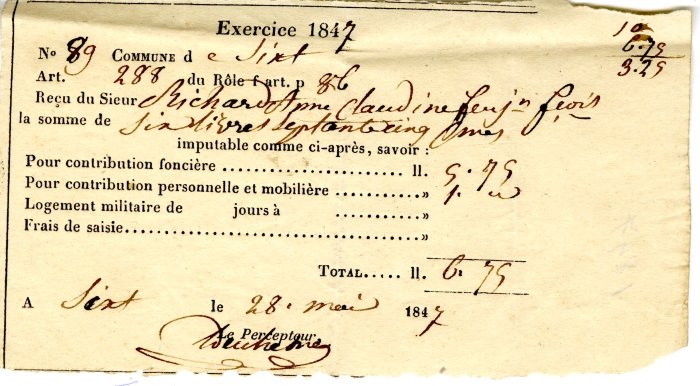 Exercice 1847
10
6.75
3.25
No 89 COMMUNE d e Sixt
Art. 288 du Rôle f art. p 86
Reçu du Sieur Richard pne Claudine feu jn fçois
la somme de six livres septante cinq cmes
imputable comme ci-après, savoir :
Pour contribution foncière .................... ll. 5. 75
Pour contribution personnelle et mobilière ........... » 1. "
Logement militaire de jours à ........... »
Frais de saisie ........................................ »
TOTAL..... ll. 6. 75
A Sixt le 28. mai 1847
Le Percepteur